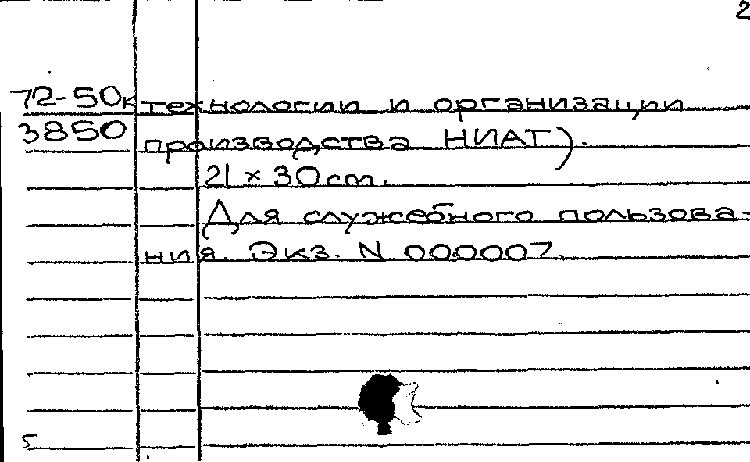 2
72-50к технологии и организации
3850 производства НИАТ).
21 × 30 cm.
Для служебного пользова-
ния. Экз. N 000007
5